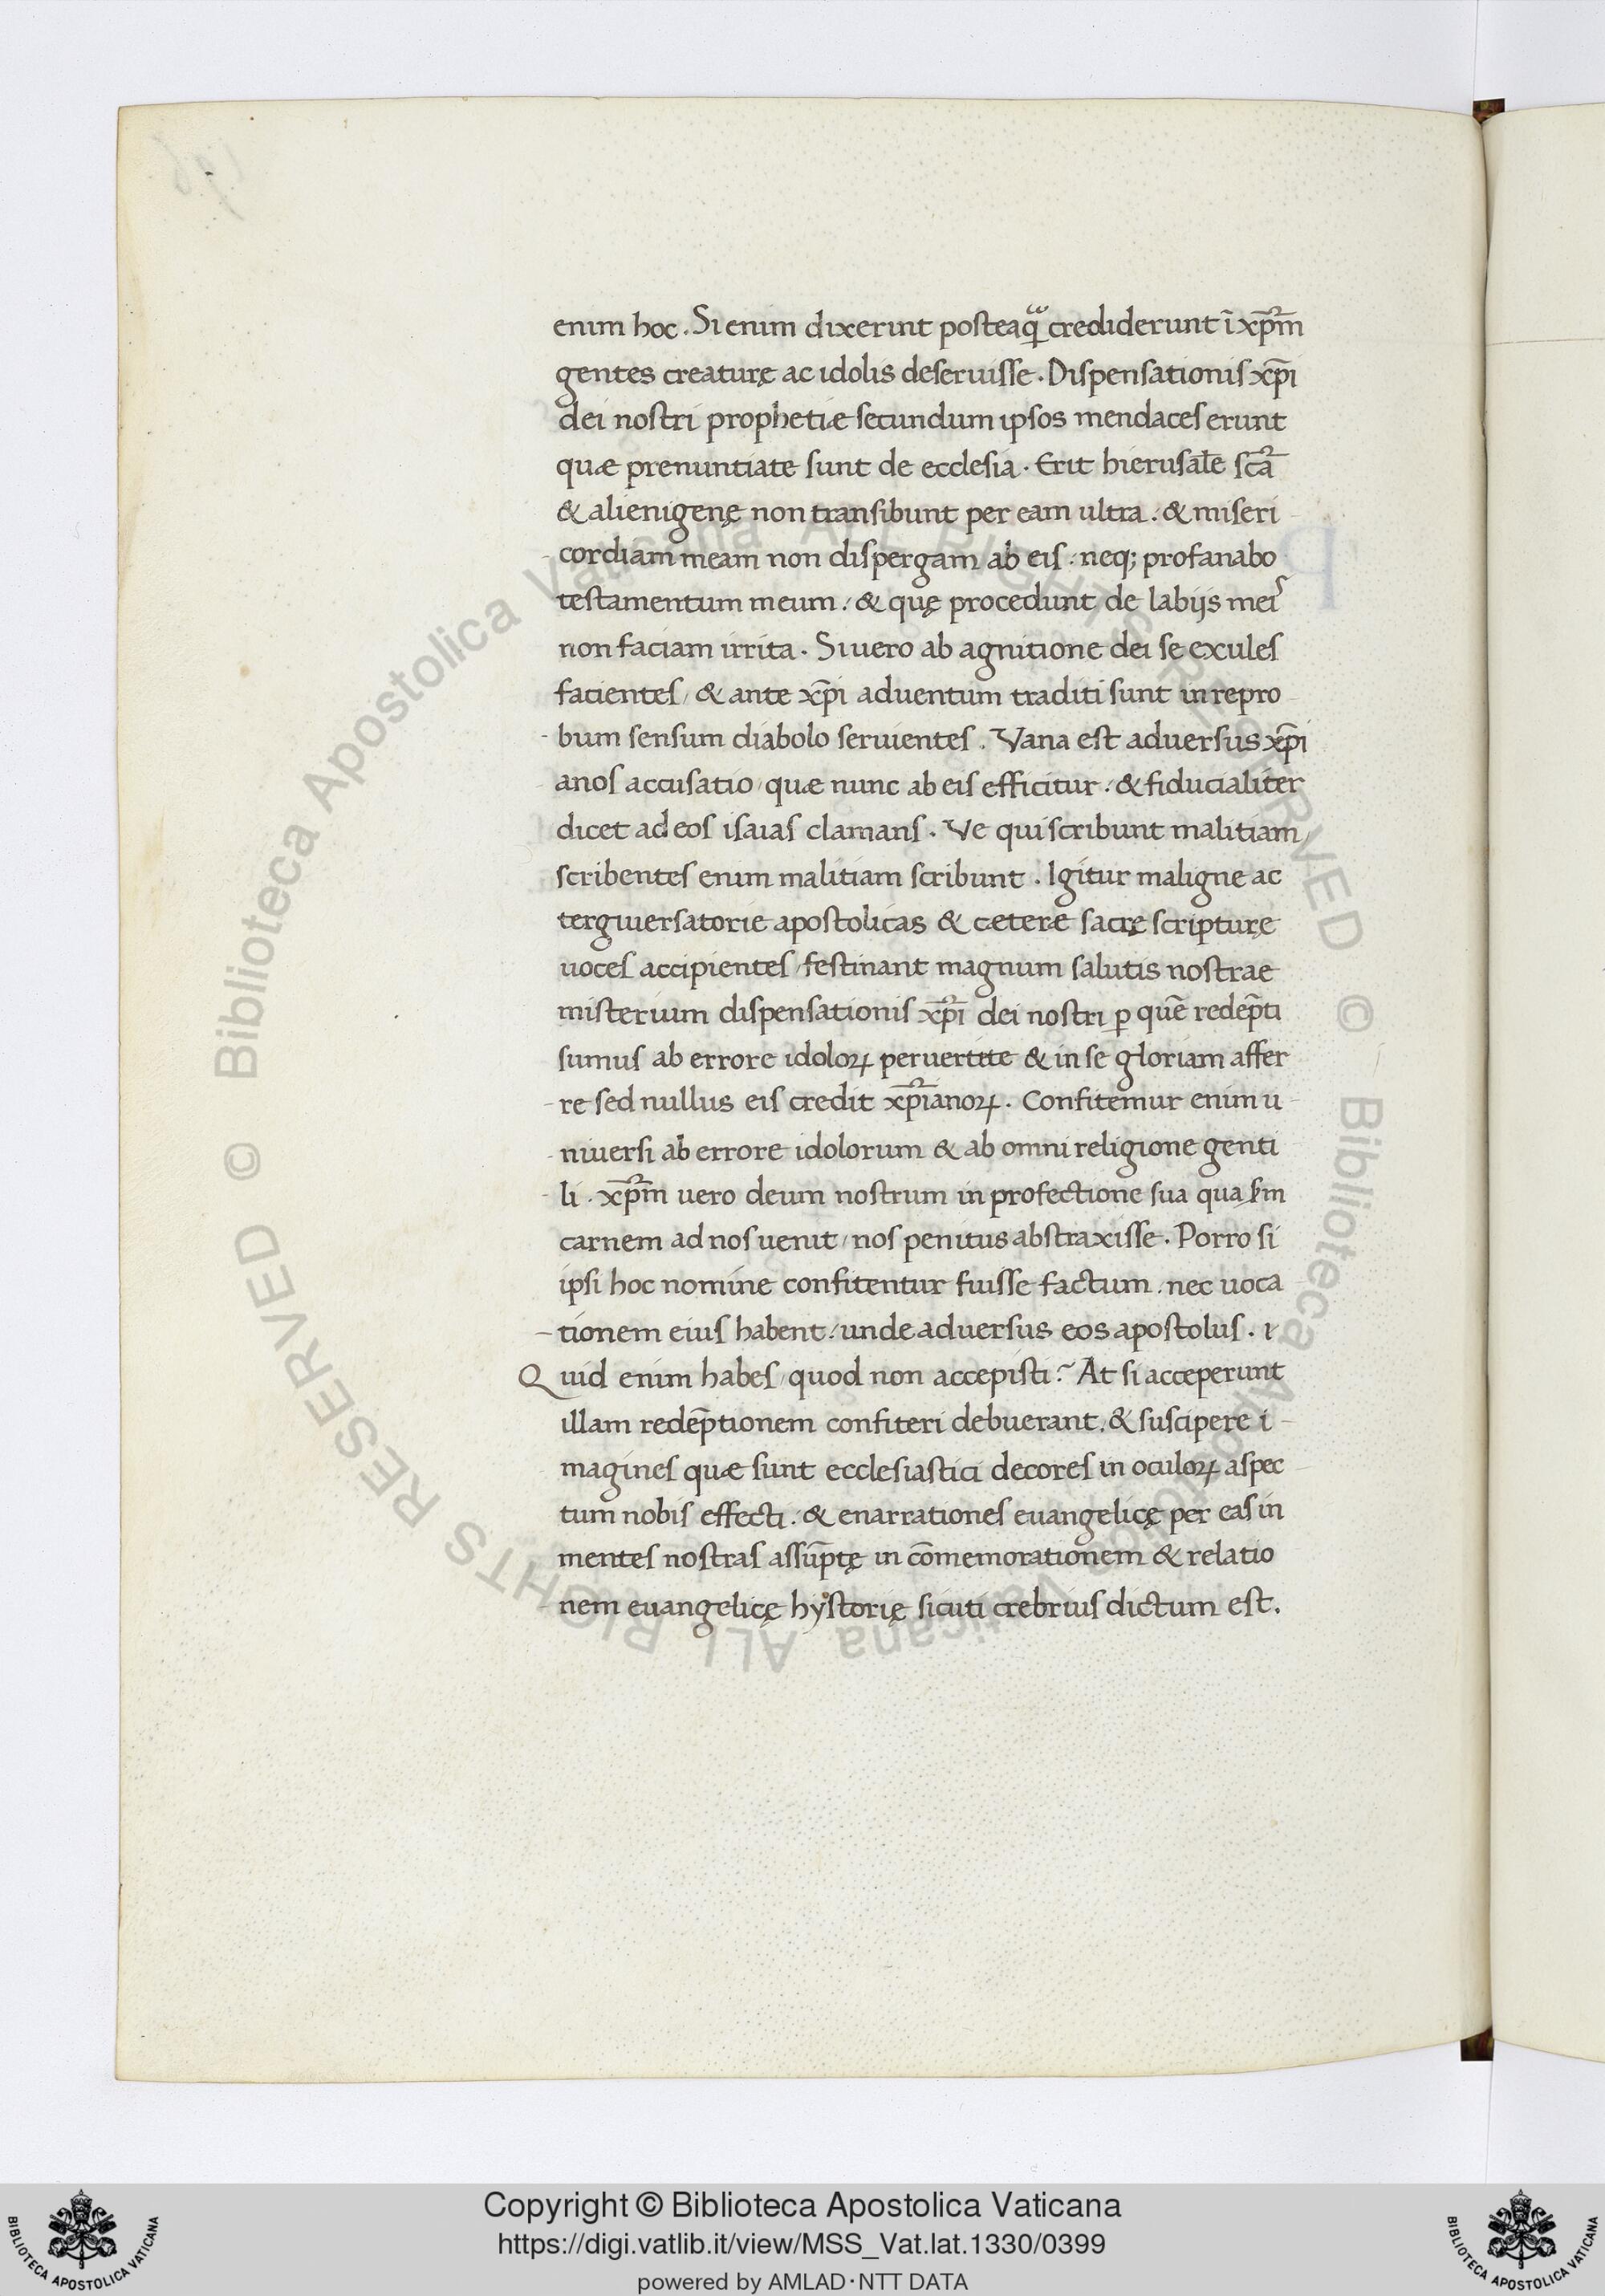 enim hoc. Si enim dixerint posteaꝙ̃ crediderunt ĩ xp̄m
gentes creaturę ac idolis deseruisse. Dispensationis xp̄i
dei nostri prophetiæ secundum ipsos mendaces erunt
quæ prenuntiate sunt de ecclesia. Erit hierusalē sc̄a
& alienigenę non transibunt per eam ultra. & miseri
-cordiam meam non dispergam ab eis. neq; profanabo
testamentum meum. & quę procedunt de labijs meis
non faciam irrita. Si uero ab agnitione dei se exules
facientes, & ante xp̄i aduentum traditi sunt in repro
-bum sensum diabolo seruientes. Vana est aduersus xp̄i
anos accusatio, quæ nunc ab eis efficitur. & fiducialiter
dicet ad eos isaias clamans. Ve qui scribunt malitiam,
scribentes enim malitiam scribunt. Igitur maligne ac
tergiuersatorie apostolicas & cæteræ sacrę scripturę
uoces accipientes, festinant magnum salutis nostrae
misterium dispensationis xp̄i dei nostri ꝑ quē redēpti
sumus ab errore idoloꝝ peruertite & in se gloriam affer
-re sed nullus eis credit xp̄ianoꝝ. Confitemur enim u
-niuersi ab errore idolorum & ab omni religione genti
-li. xp̄m uero deum nostrum in profectione sua qua ẜm
carnem ad nos uenit, nos penitus abstraxisse. Porro si
ipsi hoc nomine confitentur fuisse factum, nec uoca
-tionem eius habent. unde aduersus eos apostolus. i
Quid enim habes, quod non accepisti? At si acceperunt
illam redēptionem confiteri debuerant. & suscipere i-
magines quæ sunt ecclesiastici decores in oculoꝝ aspec
tum nobis effecti. & enarrationes euangelicę per eas in
mentes nostras assūptę in cōmemorationem & relatio
nem euangelicę hystorię sicuti crebrius dictum est.
© Biblioteca Apostolica Vaticana ALL RIGHTS RESERVED © Biblioteca Apostolica Vaticana ALL RIGHTS RESERVED
Copyright © Biblioteca Apostolica Vaticana
https://digi.vatlib.it/view/MSS_Vat.lat.1330/0399
powered by AMLAD·NTT DATA
BIBLIOTECA APOSTOLICA VATICANA
BIBLIOTECA APOSTOLICA VATICANA